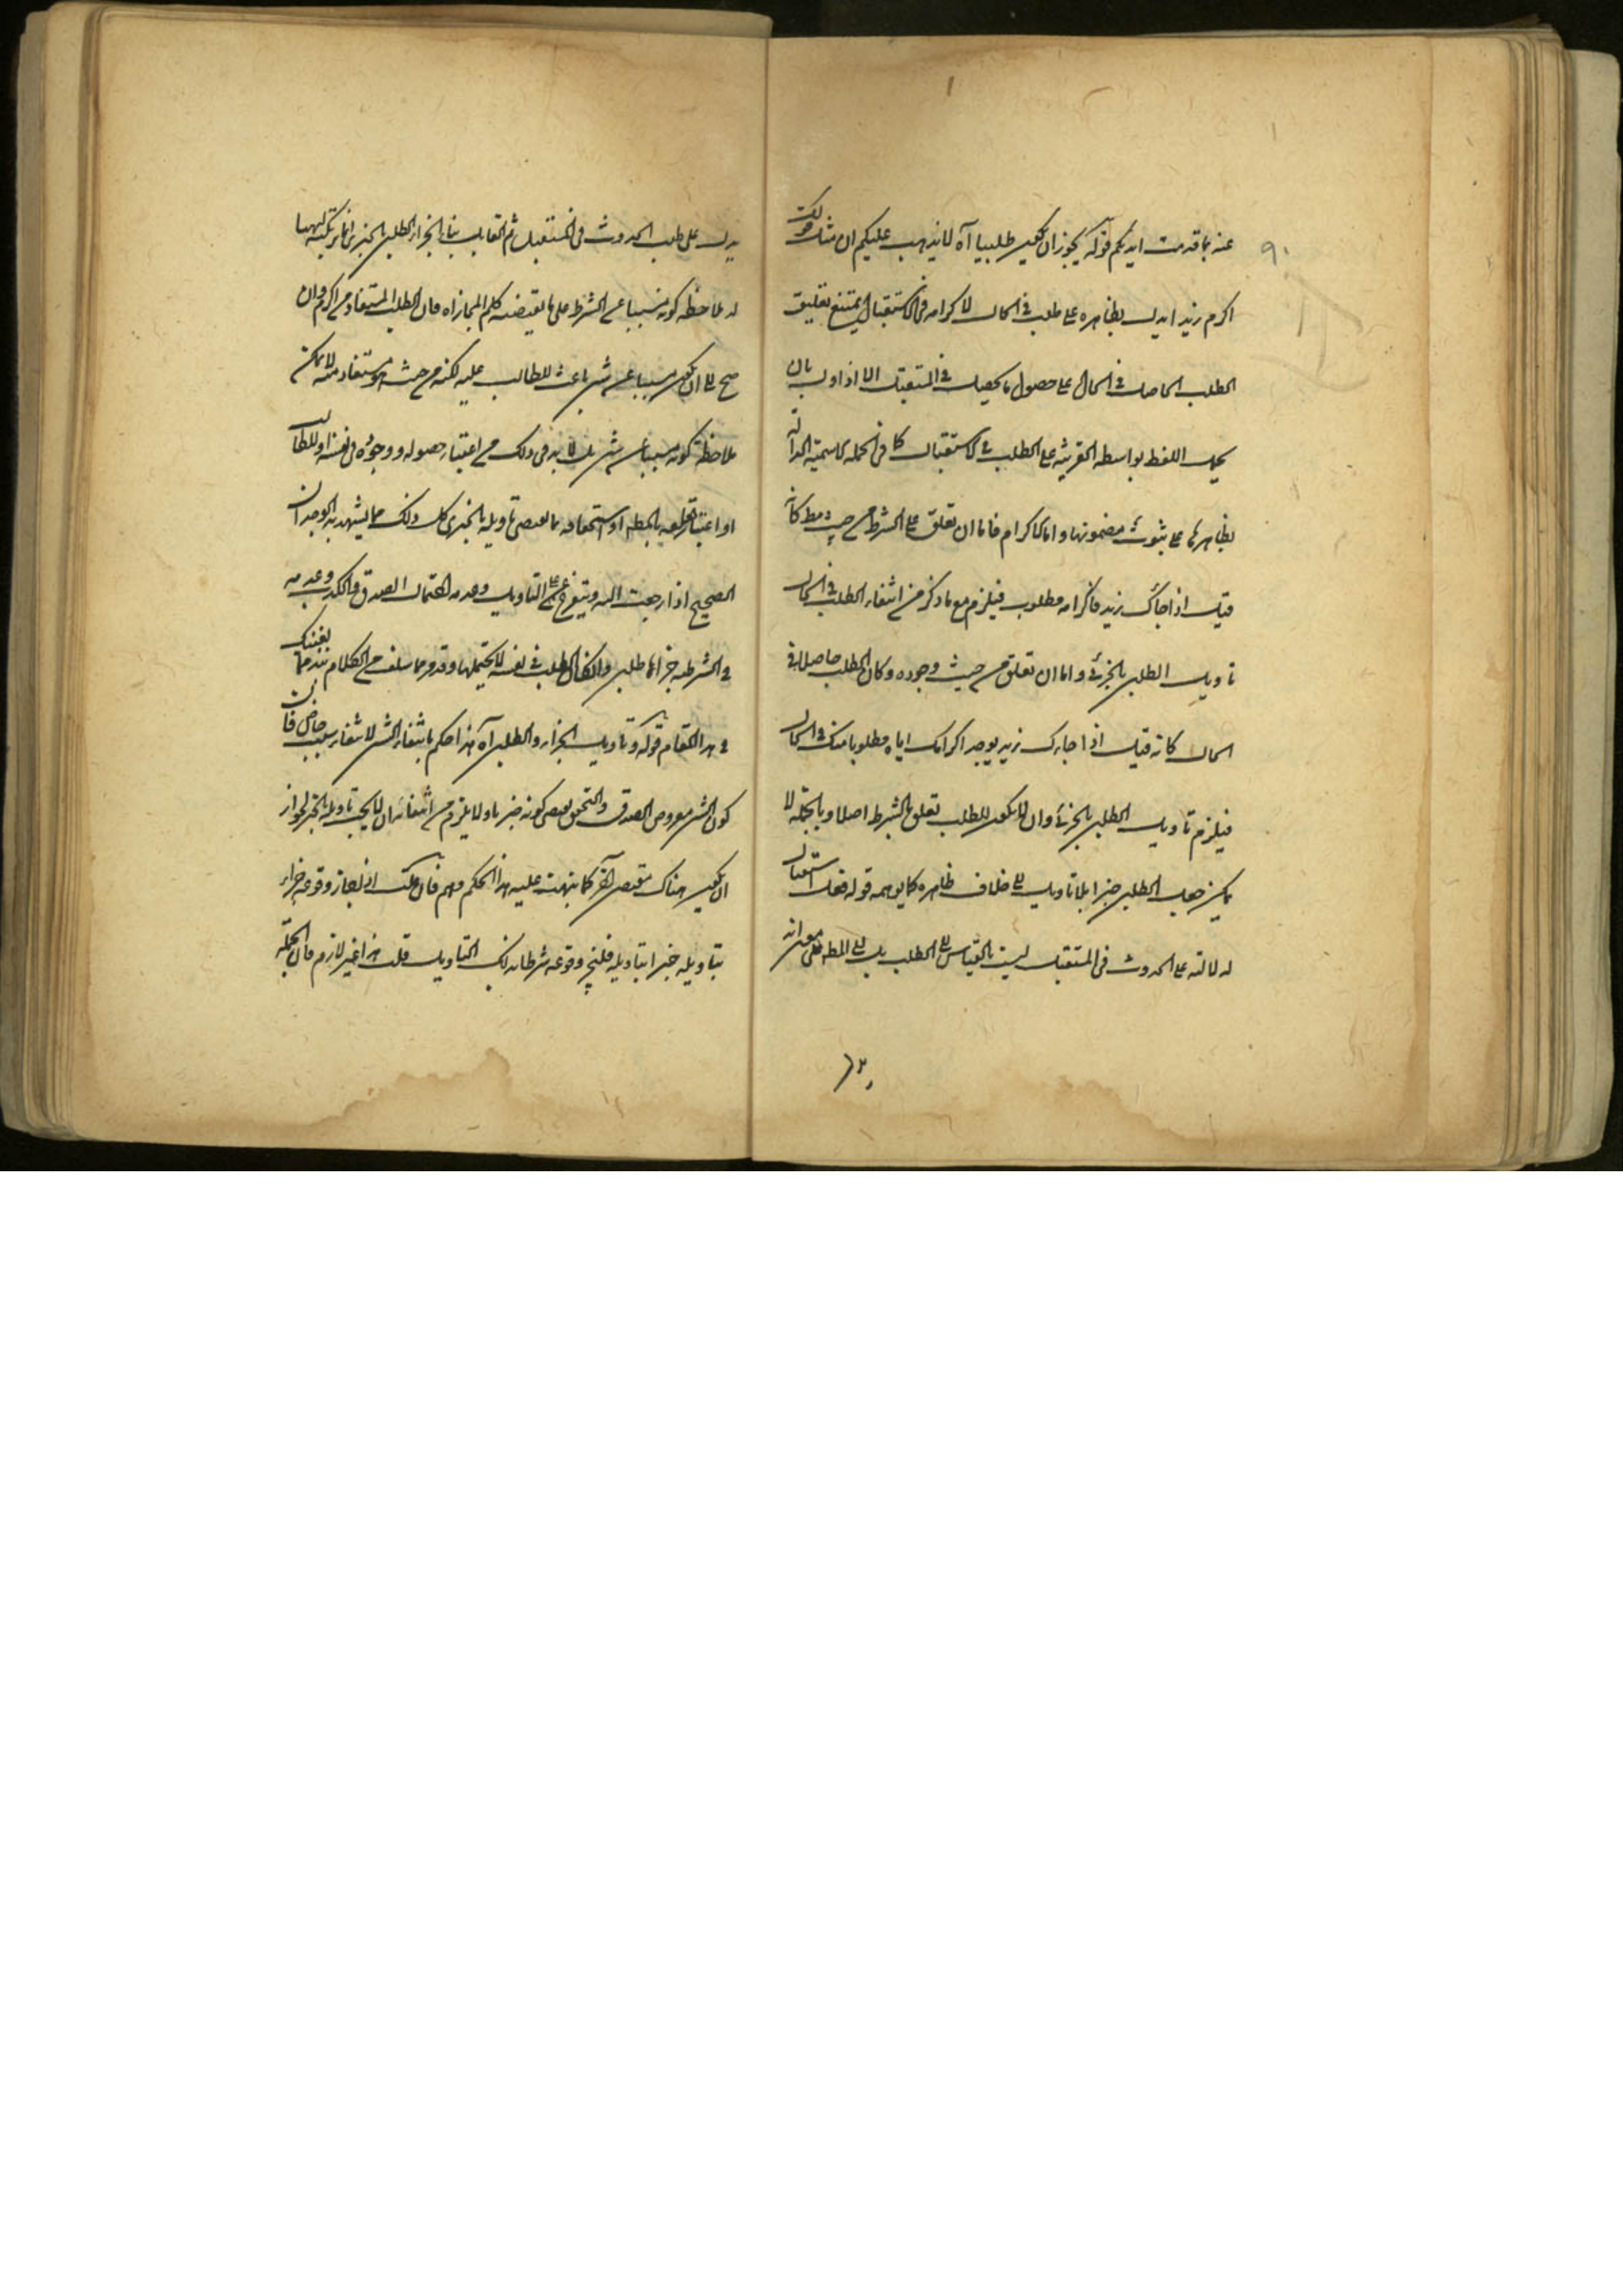 ٩٠
عنه بما قدمت ايديكم قوله يجوز ان يكون طلبيا آه لا يذهب عليكم ان مثل قولك
اكرم زيدا يدل بظاهره على طلب في الحال لاكرامه في الاستقبال يمتنع تعليق
الطلب الحاصل في الحال على حصول ما يحصل في المستقبل الا اذا اول بان
يحمل اللفظ بواسطة القرينة على الطلب في الاستقبال كما في الجملة الاسمية الدالة
بظاهرها على ثبوت مضمونها واما الاكرام فاما ان تعلق على الشرط من حيث
قيل اذا جاءك زيد فاكرامه مطلوب فيلزم مع ما ذكر من انتفاء الطلب في الحال
تاويل الطلبي بالخبري واما ان تعلق من حيث وجوده وكان الطلب حاصلا في
الحال كانه قيل اذا جاءك زيد يوجد اكرامك اياه مطلوبا منك في الحال
فيلزم تاويل الطلبي بالخبري وان لا يكون للطلب تعلق بالشرط اصلا وبالجملة لا
يمكن جعل الطلبي خبرا بلا تاويل على خلاف ظاهره كما يوهمه قوله فعل استقبال
لدلالته على الحدوث في المستقبل ليست بالقياس الى الطلب بل الى المط فمعنى انه
يدل على طلب الحدوث في المستقبل ثم القابل بتاويل الجزاء الطلبي بالخبري انما يرتكبه
له ملاحظة كونه مسببا عن الشرط على ما يقتضيه كلم المجازاه فان الطلب المستفاد من اكرم وان
صح الى ان يكون مسببا عن شئ باعث للطالب عليه لكنه من حيث هو مستفاد منه لا يمكن
ملاحظة كونه مسببا عن شئ بل لا بد في ذلك من اعتبار حصوله ووجوده في نفسه او للطالب
او اعتبار تعلقه بالمط او استحقاقه مما يقتضي تاويله بالخبري كل ذلك مما يشهد به الوجدان
الصحيح اذا رجعت اليه ويتفرع على التاويل وعدمه احتمال الصدق والكذب وعدمه
في الشرطية جزائها طلبي وان كان الطلب في نفسه لا يحتملها وقد مر مما سلف من الكلام
في هذا المقام قوله وتاويل الجزاء الطلبي آه هذا حكم بانتفاء الشئ لانتفاء سبب خاص فان
كون الشئ معروض الصدق والتحقق يقتضي كونه خبريا ولا يلزم من انتفائه ان لا يجب تاويله بالخبر لجواز
ان يكون هناك مقتض آخر كما نبهت عليه هذا الحكم وهم فان قلت اذن لجاز وقوعه جزاء
بتاويله خبرا بتاويله فليجز وقوعه شرطا بذلك التاويل قلت هذا غير لازم فان الجملة